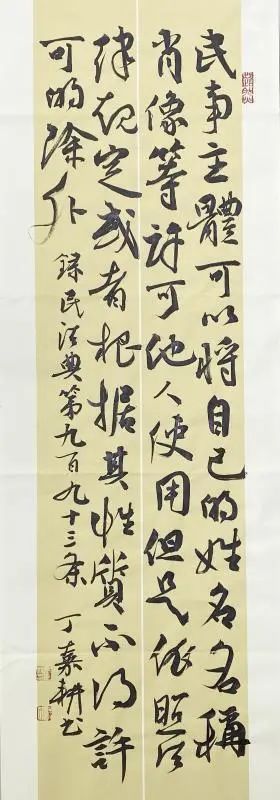 民事主體可以将自己的姓名名稱
肖像等许可他人使用但是依照法
律规定或者根据其性質不得許
可的除外
録民法典第九百九十三条 丁嘉耕书